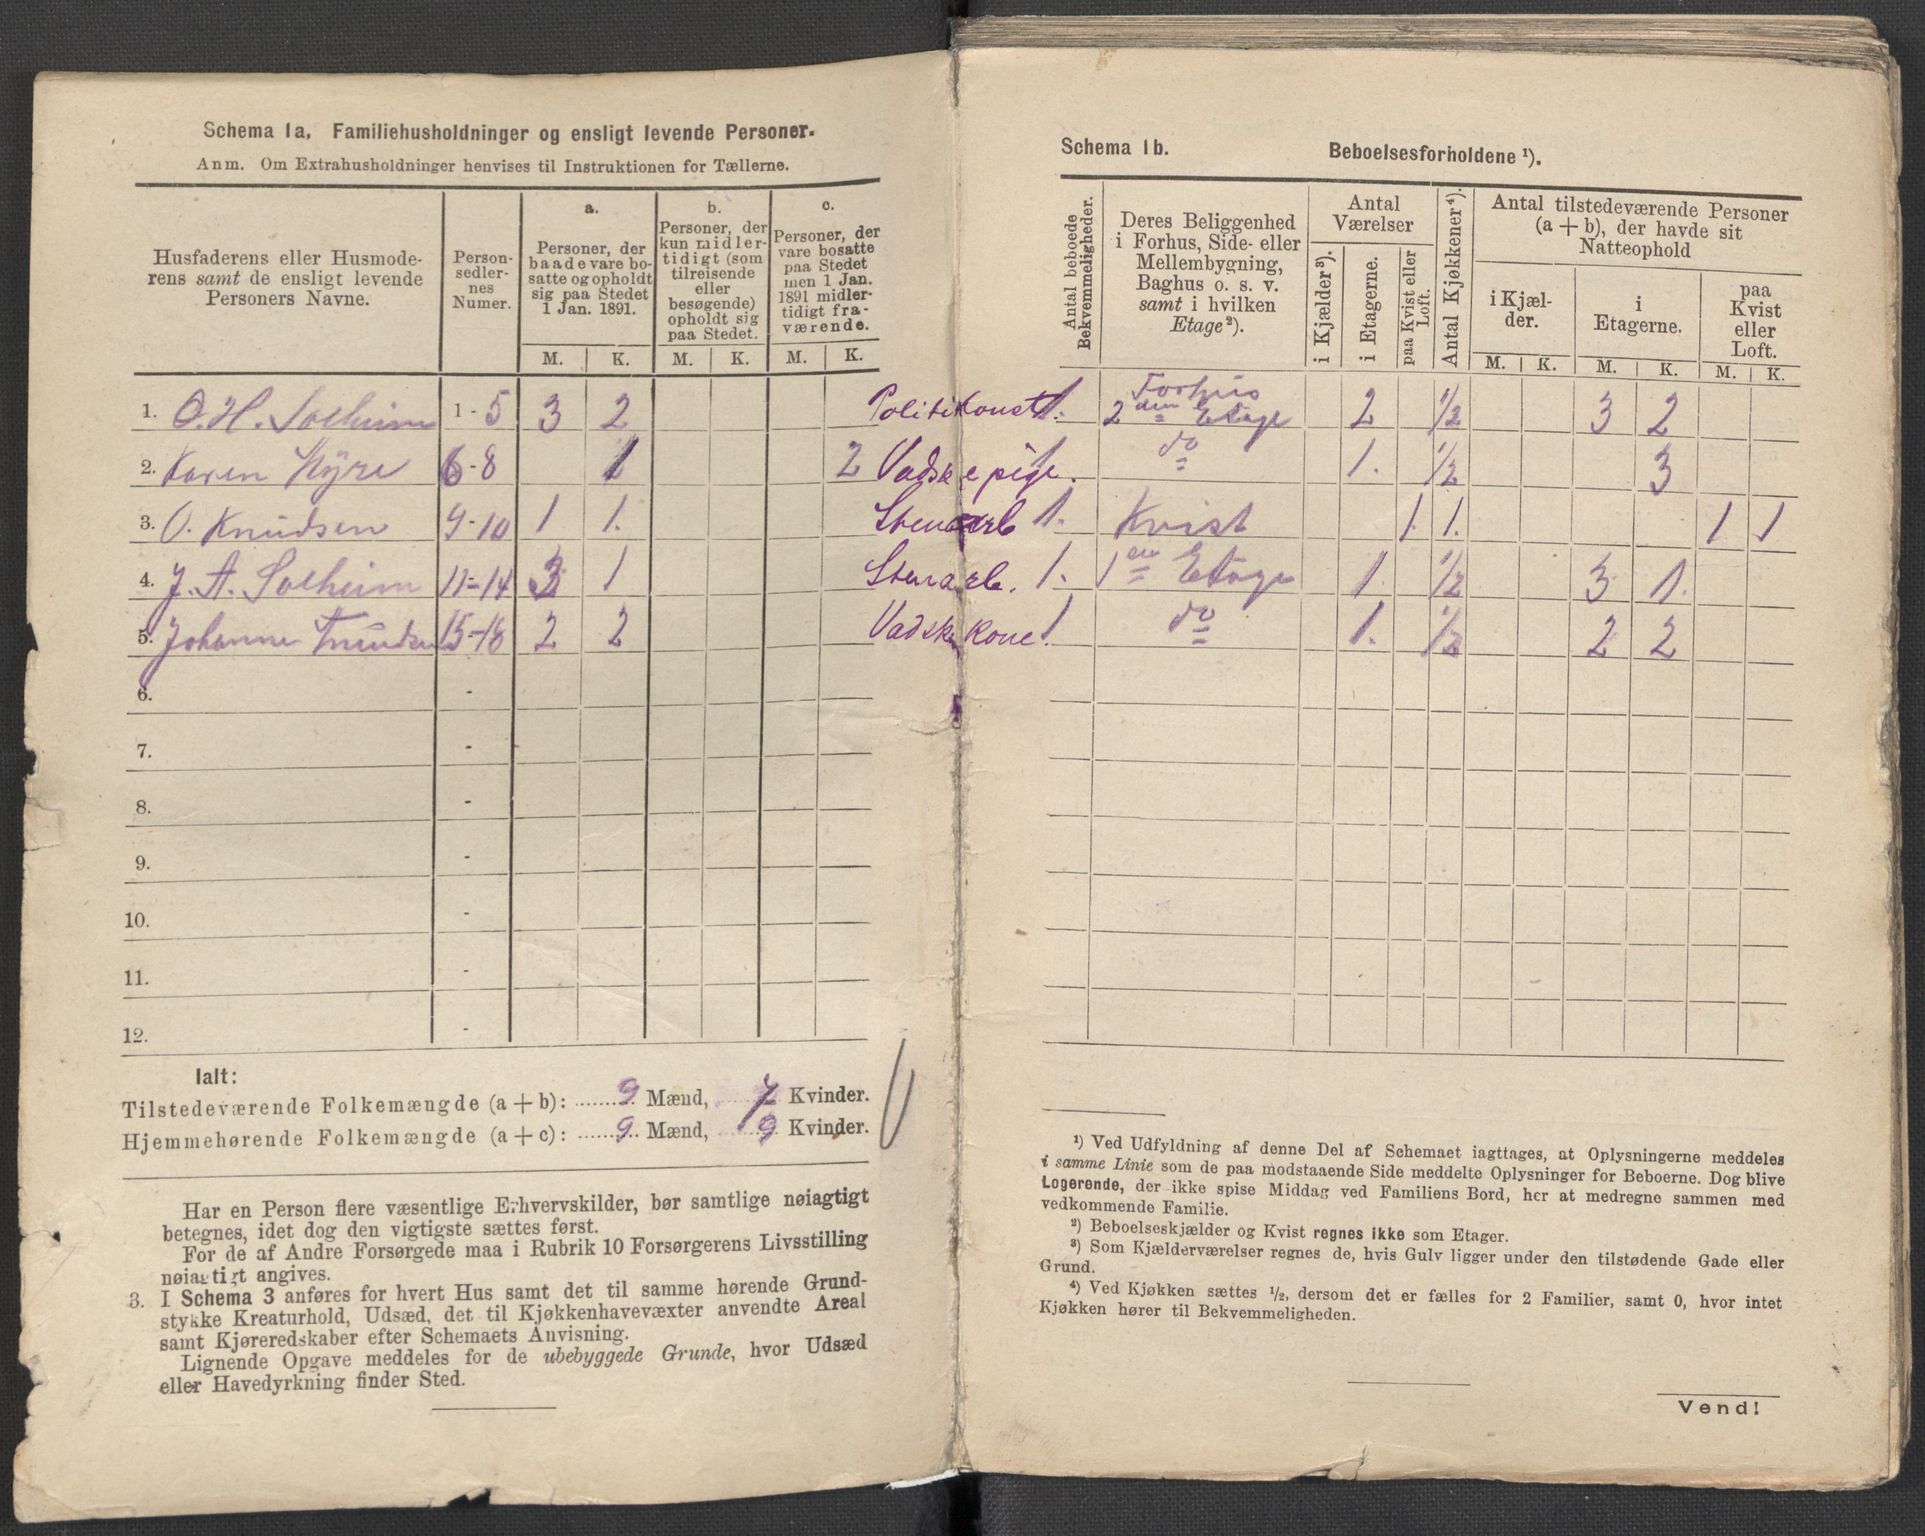 Schema 1a. Familiehusholdninger og ensligt levende Personer.
Anm. Om Extrahusholdninger henvises til Instruktionen for Tællerne.
Husfaderens eller Husmoderens samt de ensligt levende Personers Navne.
Person-sedler-nes Numer.
a.
Personer, der baade vare bosatte og opholdt sig paa Stedet 1 Jan. 1891.
b.
Personer, der kun midlertidigt (som tilreisende eller besøgende) opholdt sig paa Stedet.
c.
Personer, der vare bosatte paa Stedet men 1 Jan. 1891 midlertidigt fraværende.
M. K. M. K. M. K.
1. O. H. Solheim 1-5 3 2 Politikonst.
2. Karen Myre 6-8 1 2 Vadskepige.
3. O. Knudsen 9-10 1 1. Stenarb
4. J. A. Solheim 11=14 3 1 Stenarb.
5. Johanne Knudsen 15-18 2 2 Vadskekone
6. -
7. -
8. -
9. -
10. -
11. -
12. -
Ialt:
Tilstedeværende Folkemængde (a+b): 9 Mænd, 7 Kvinder.
Hjemmehørende Folkemængde (a+c): 9 Mænd, 9 Kvinder.
Har en Person flere væsentlige Erhvervskilder, bør samtlige nøiagtigt
betegnes, idet dog den vigtigste sættes først.
For de af Andre Forsørgede maa i Rubrik 10 Forsørgerens Livsstilling
nøiagtigt angives.
3. I Schema 3 anføres for hvert Hus samt det til samme hørende Grund-
stykke Kreaturhold, Udsæd, det til Kjøkkenhavevæxter anvendte Areal
samt Kjøreredskaber efter Schemaets Anvisning.
Lignende Opgave meddeles for de ubebyggede Grunde, hvor Udsæd
eller Havedyrkning finder Sted.
Schema 1b. Beboelsesforholdene ¹).
Antal beboede Bekvemmeligheder.
Deres Beliggenhed i Forhus, Side- eller Mellembygning, Baghus o. s. v. samt i hvilken Etage²).
Antal Værelser
i Kjælder³).
i Etagerne.
paa Kvist eller Loft.
Antal Kjøkkener⁴).
Antal tilstedeværende Personer (a+b), der havde sit Natteophold
i Kjælder.
i Etagerne.
paa Kvist eller Loft.
M. K. M. K. M. K.
1. Forhus
2den Etage 2 ½ 3 2
1 do 1. ½ 3
1. Kvist 1. 1. 1 1
1. 1ste Etage 1 ½ 3 1.
1. do 1. ½ 2 2
¹) Ved Udfyldning af denne Del af Schemaet iagttages, at Oplysningerne meddeles
i samme Linie som de paa modstaaende Side meddelte Oplysninger for Beboerne. Dog blive
Logerende, der ikke spise Middag ved Familiens Bord, her at medregne sammen med
vedkommende Familie.
²) Beboelseskjælder og Kvist regnes ikke som Etager.
³) Som Kjælderværelser regnes de, hvis Gulv ligger under den tilstødende Gade eller
Grund.
⁴) Ved Kjøkken sættes ½, dersom det er fælles for 2 Familier, samt 0, hvor intet
Kjøkken hører til Bekvemmeligheden.
Vend!